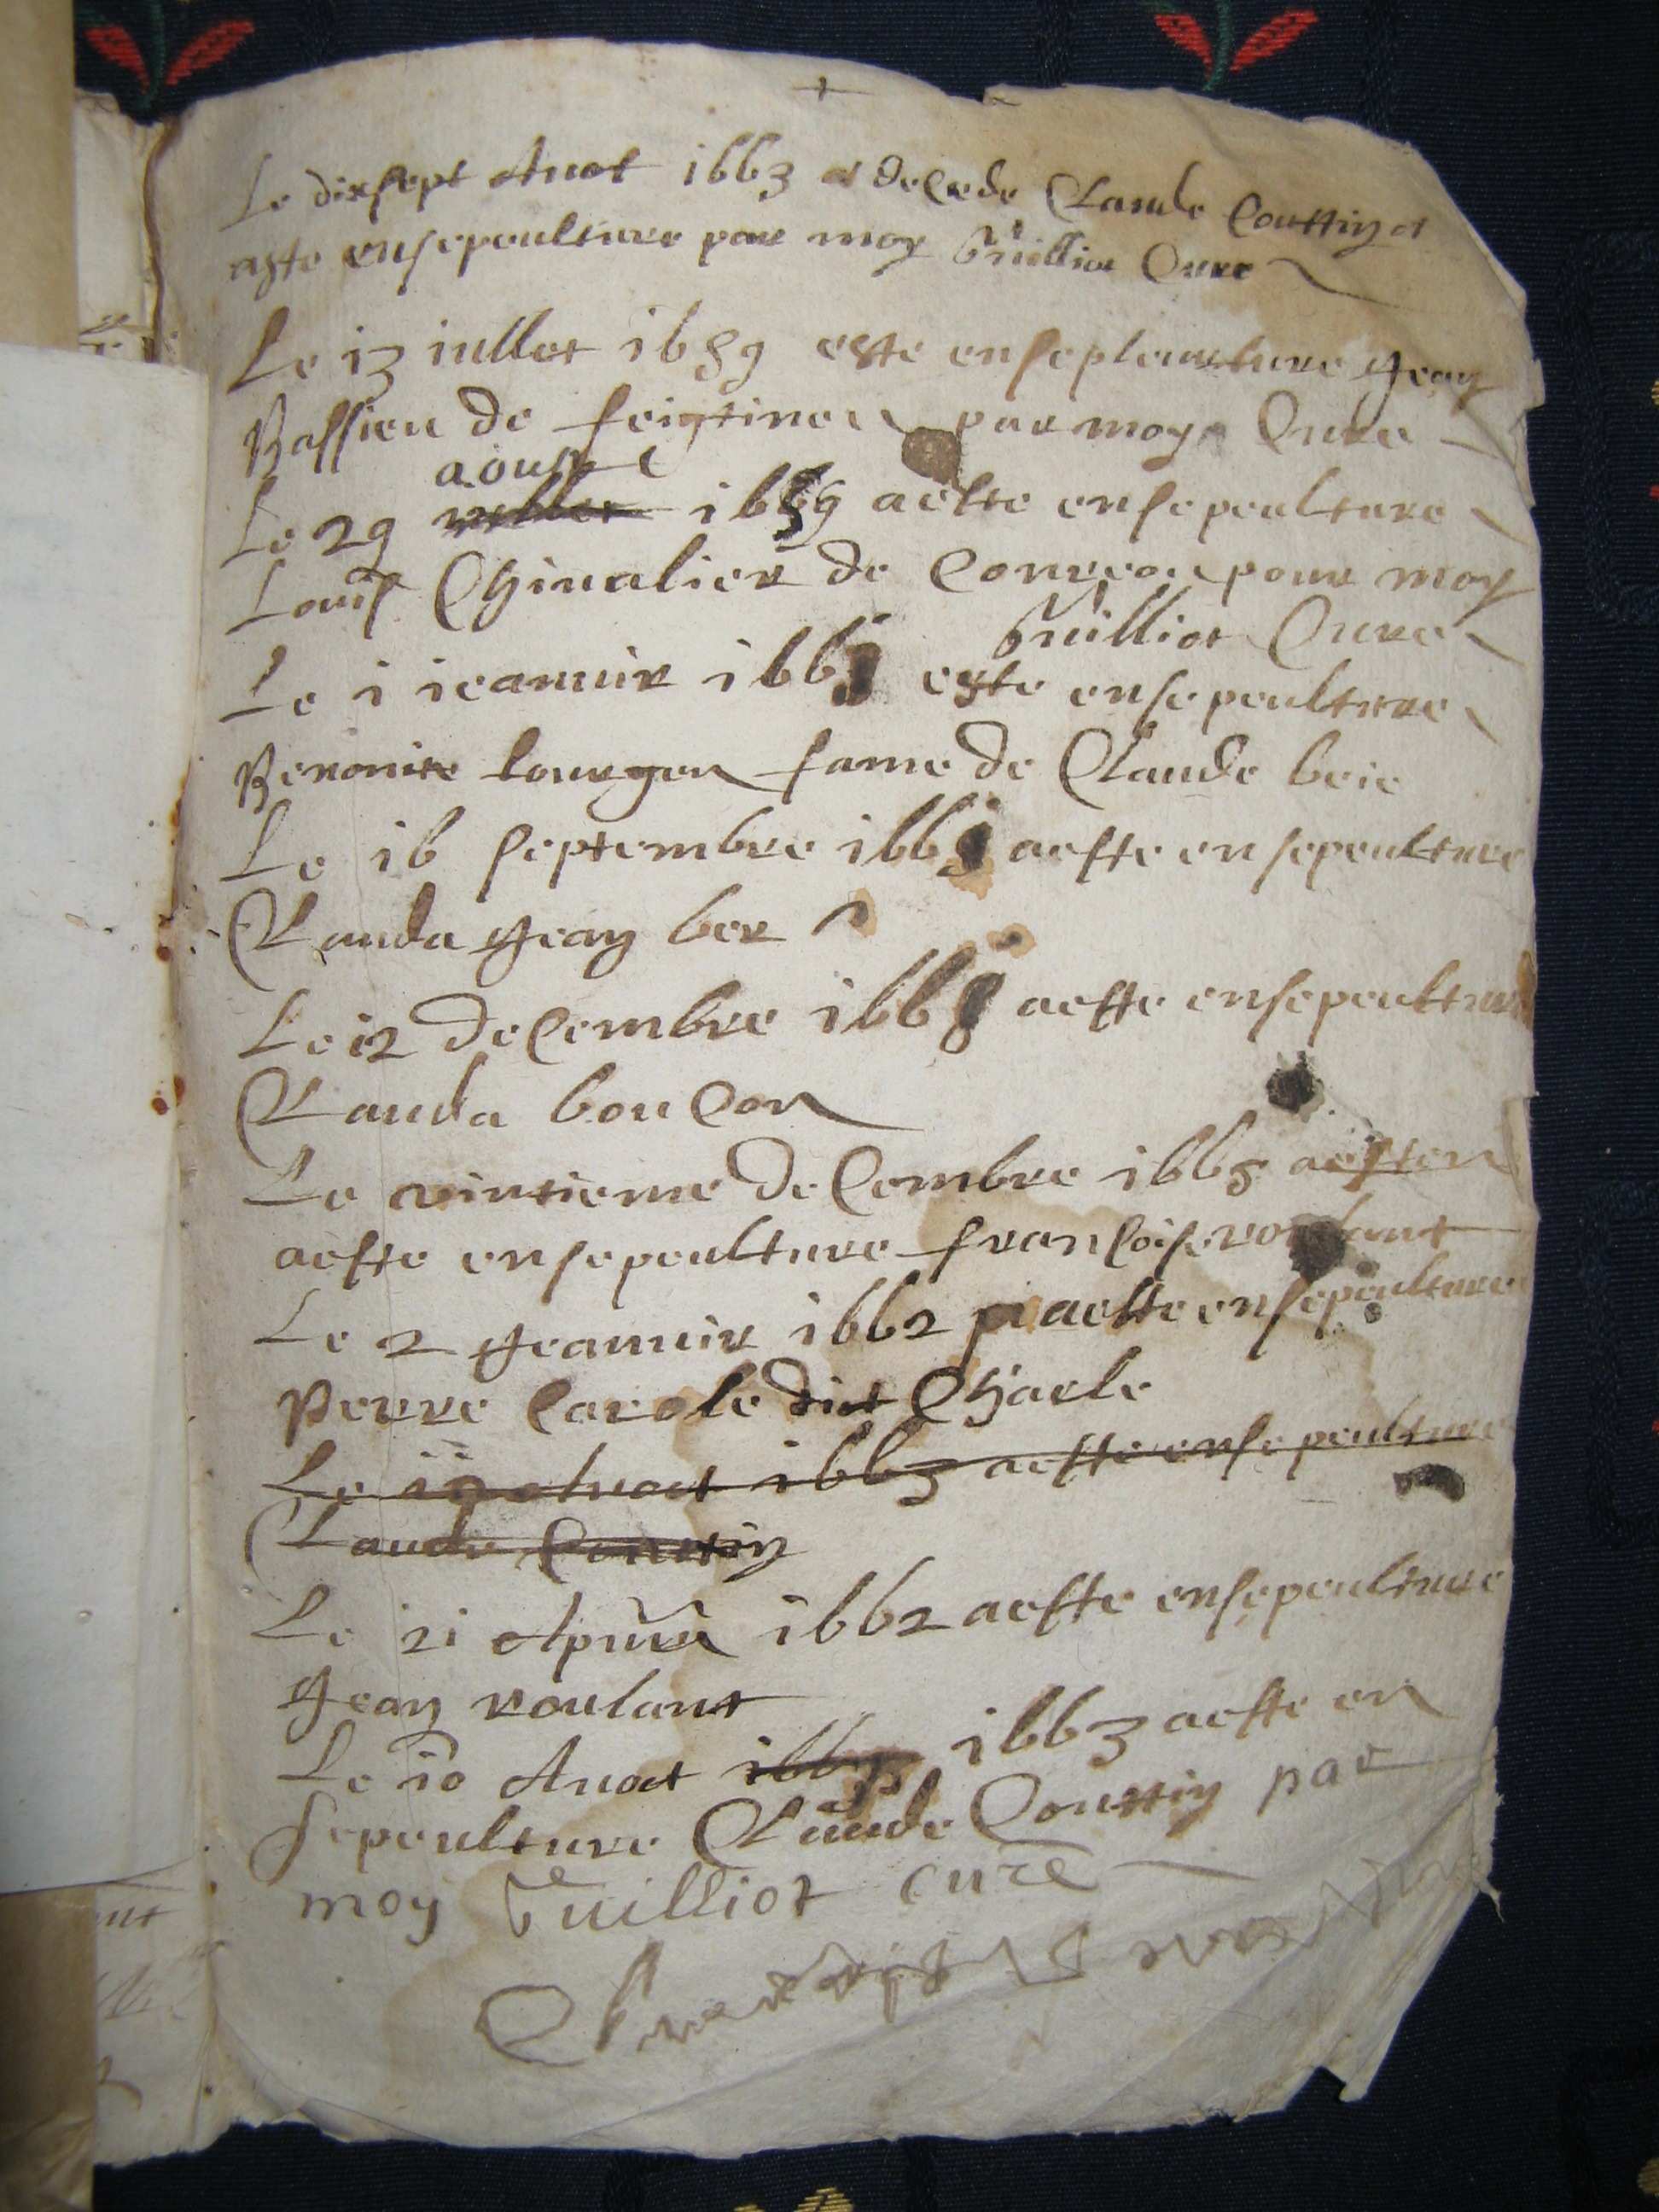 Le dixsept Auot 1663 at decede Claude Couttin et
aste ensepeulture par moy Vuilliot Cure
Le 13 iullet 1659 este ensepleulture Jean
Bassieu de par moy Cure
aoust
Le 29 1659 aeste ensepeulture
Louis Chivalier de pour moy
Vuilliot Cure
Le 1 ieanuir 166 este ensepeulture
Benoite fame de Claude beie
Le 16 septembre 166 aeste ensepeulture
Clauda Jean ber
Le 12 decembre 166 aeste ensepeulture
Clauda boucon
Le vintieme decembre 166 aesten
aeste ensepeulture francoise roulant
Le 2 Jeanuir 1662 aeste ensepeulture
Perre Carole dit Charle
Le Auot 1663 aeste ensepeulture
Claude Couttin
Le 21 1662 aeste ensepeulture
Jean roulant
Le 10 Auot 1663 aeste en
sepeulture Claude Couttin par
moy Vuilliot cure